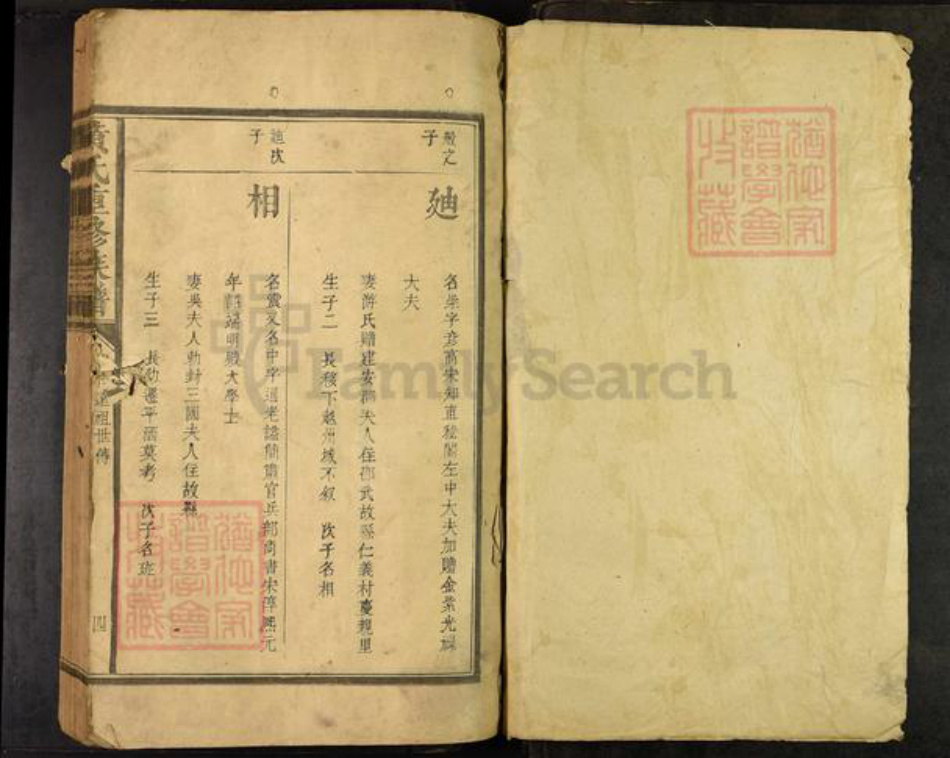 殷之
子
廸
名崇字彥高宋知直秘閣左中大夫加贈金紫光祿
大夫
妻游氏贈建安郡夫人住邵武故縣仁義村慶親里
生子二 長稷下越州城不叙 次子名相
廸次
子
相
名震又名中字通老諡簡肅官兵部尚書宋淳熙元
年 端明殿大學士
妻吳夫人勅封三國夫人住故縣
生子三 長幼遷平酒莫考 次子名班
黃氏重修族譜
祖世傳
四
猶他家
譜學會
收藏
猶他家
譜學會
收藏
FamilySearch